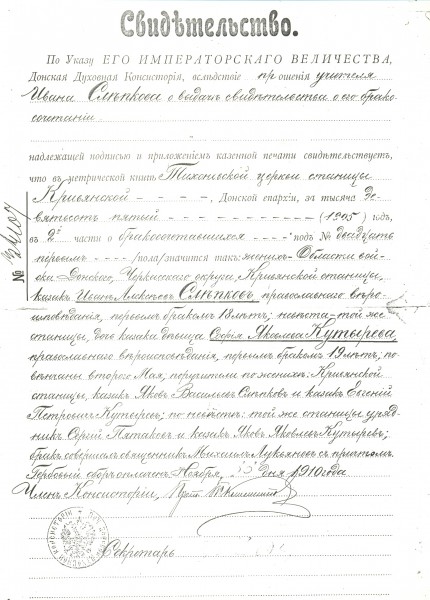 Свидѣтельство.
По Указу ЕГО ИМПЕРАТОРСКАГО ВЕЛИЧЕСТВА,
Донская Духовная Консисторія, вслѣдствіе прошенія учителя
Ивана Слѣпкова о выдачѣ свидѣтельства о его брако-
сочетаніи
надлежащей подписью и приложеніемъ казенной печати свидѣтельствуетъ,
что въ метрической книгѣ Тихоновской церкви станицы
Кривянской - - - - -, Донской епархіи, за тысяча де-
вятьсотъ пятый - - - - - - - (1905) годъ,
въ 2й части о бракосочетавшихся - - подъ № двадцать
первымъ - - - /пола/значится такъ: женихъ Области Вой-
ска Донского, Черкасскаго округа, Кривянской станицы,
казакъ Иванъ Алексѣевъ Слѣпковъ, православнаго вѣро-
исповѣданія, первымъ бракомъ 18 лѣтъ; невѣста - той же
станицы, дочь казака дѣвица Софія Яковлева Кутырева,
православнаго вѣроисповѣданія, первымъ бракомъ 19 лѣтъ; по-
вѣнчаны второго Мая; поручители по женихѣ: Кривянской
станицы, казакъ Яковъ Васильевъ Слѣпковъ и казакъ Евгеній
Петровичъ Кутыревъ; по невѣстѣ: той же станицы уряд-
никъ Сергій Пятаковъ и казакъ Яковъ Яковлевъ Кутыревъ;
бракъ совершалъ священникъ Михаилъ Лукьяновъ съ причтомъ.
Гербовый сборъ оплаченъ. Ноября, дня 1910 года
Членъ Консисторіи, Прот.
Секретарь
№